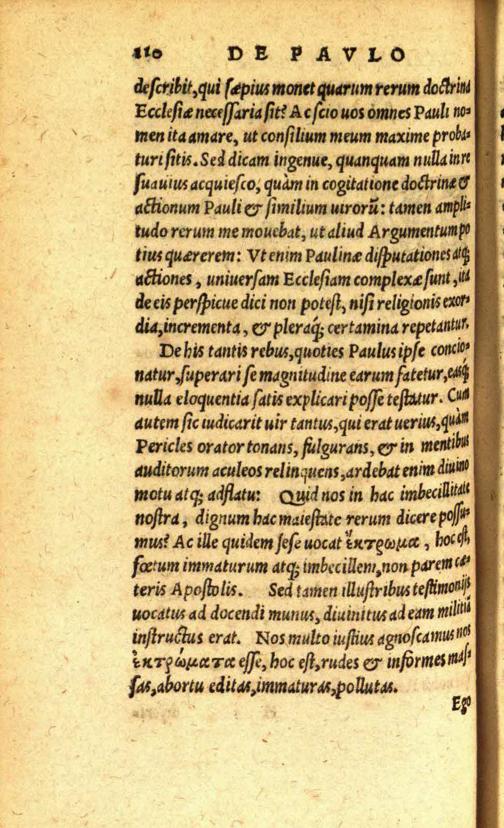 110 DE PAVLO
describit, qui sæpius monet quarum rerum doctrina
Ecclesiæ necessaria sit? Ac scio uos omnes Pauli no=
men ita amare, ut consilium meum maxime proba=
turi sitis. Sed dicam ingenue, quanquam nulla in re
suauius acquiesco, quàm in cogitatione doctrinæ &
actionum Pauli & similium uirorũ: tamen ampli=
tudo rerum me mouebat, ut aliud Argumentum po
tius quærerem: Vt enim Paulinæ disputationes atq;
actiones, uniuersam Ecclesiam complexæ sunt, ita
de eis perspicue dici non potest, nisi religionis exor=
dia, incrementa, & pleraq; certamina repetantur.
De his tantis rebus, quoties Paulus ipse concio=
natur, superari se magnitudine earum fatetur, easq;
nulla eloquentia satis explicari posse testatur. Cum
autem sic iudicarit uir tantus, qui erat uerius, quàm
Pericles orator tonans, fulgurans, & in mentibus
auditorum aculeos relinquens, ardebat enim diuino
motu atq; adflatu: Quid nos in hac imbecillitate
nostra, dignum hac maiestate rerum dicere possu=
mus? Ac ille quidem sese uocat ἔκτρωμα, hoc est,
fœtum immaturum atq; imbecillem, non parem cæ=
teris Apostolis. Sed tamen illustribus testimonijs
uocatus ad docendi munus, diuinitus ad eam militiã
instructus erat. Nos multo iustius agnoscamus nos
ἐκτρώματα esse, hoc est, rudes & informes mas=
sas, abortu editas, immaturas, pollutas.
Ego